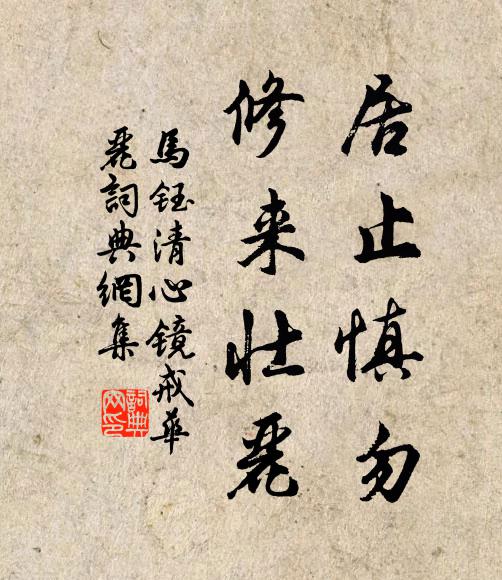 居止慎勿
修来壮麗
馬鈺清心镜戒華
麗詞典網集
詞典
网印